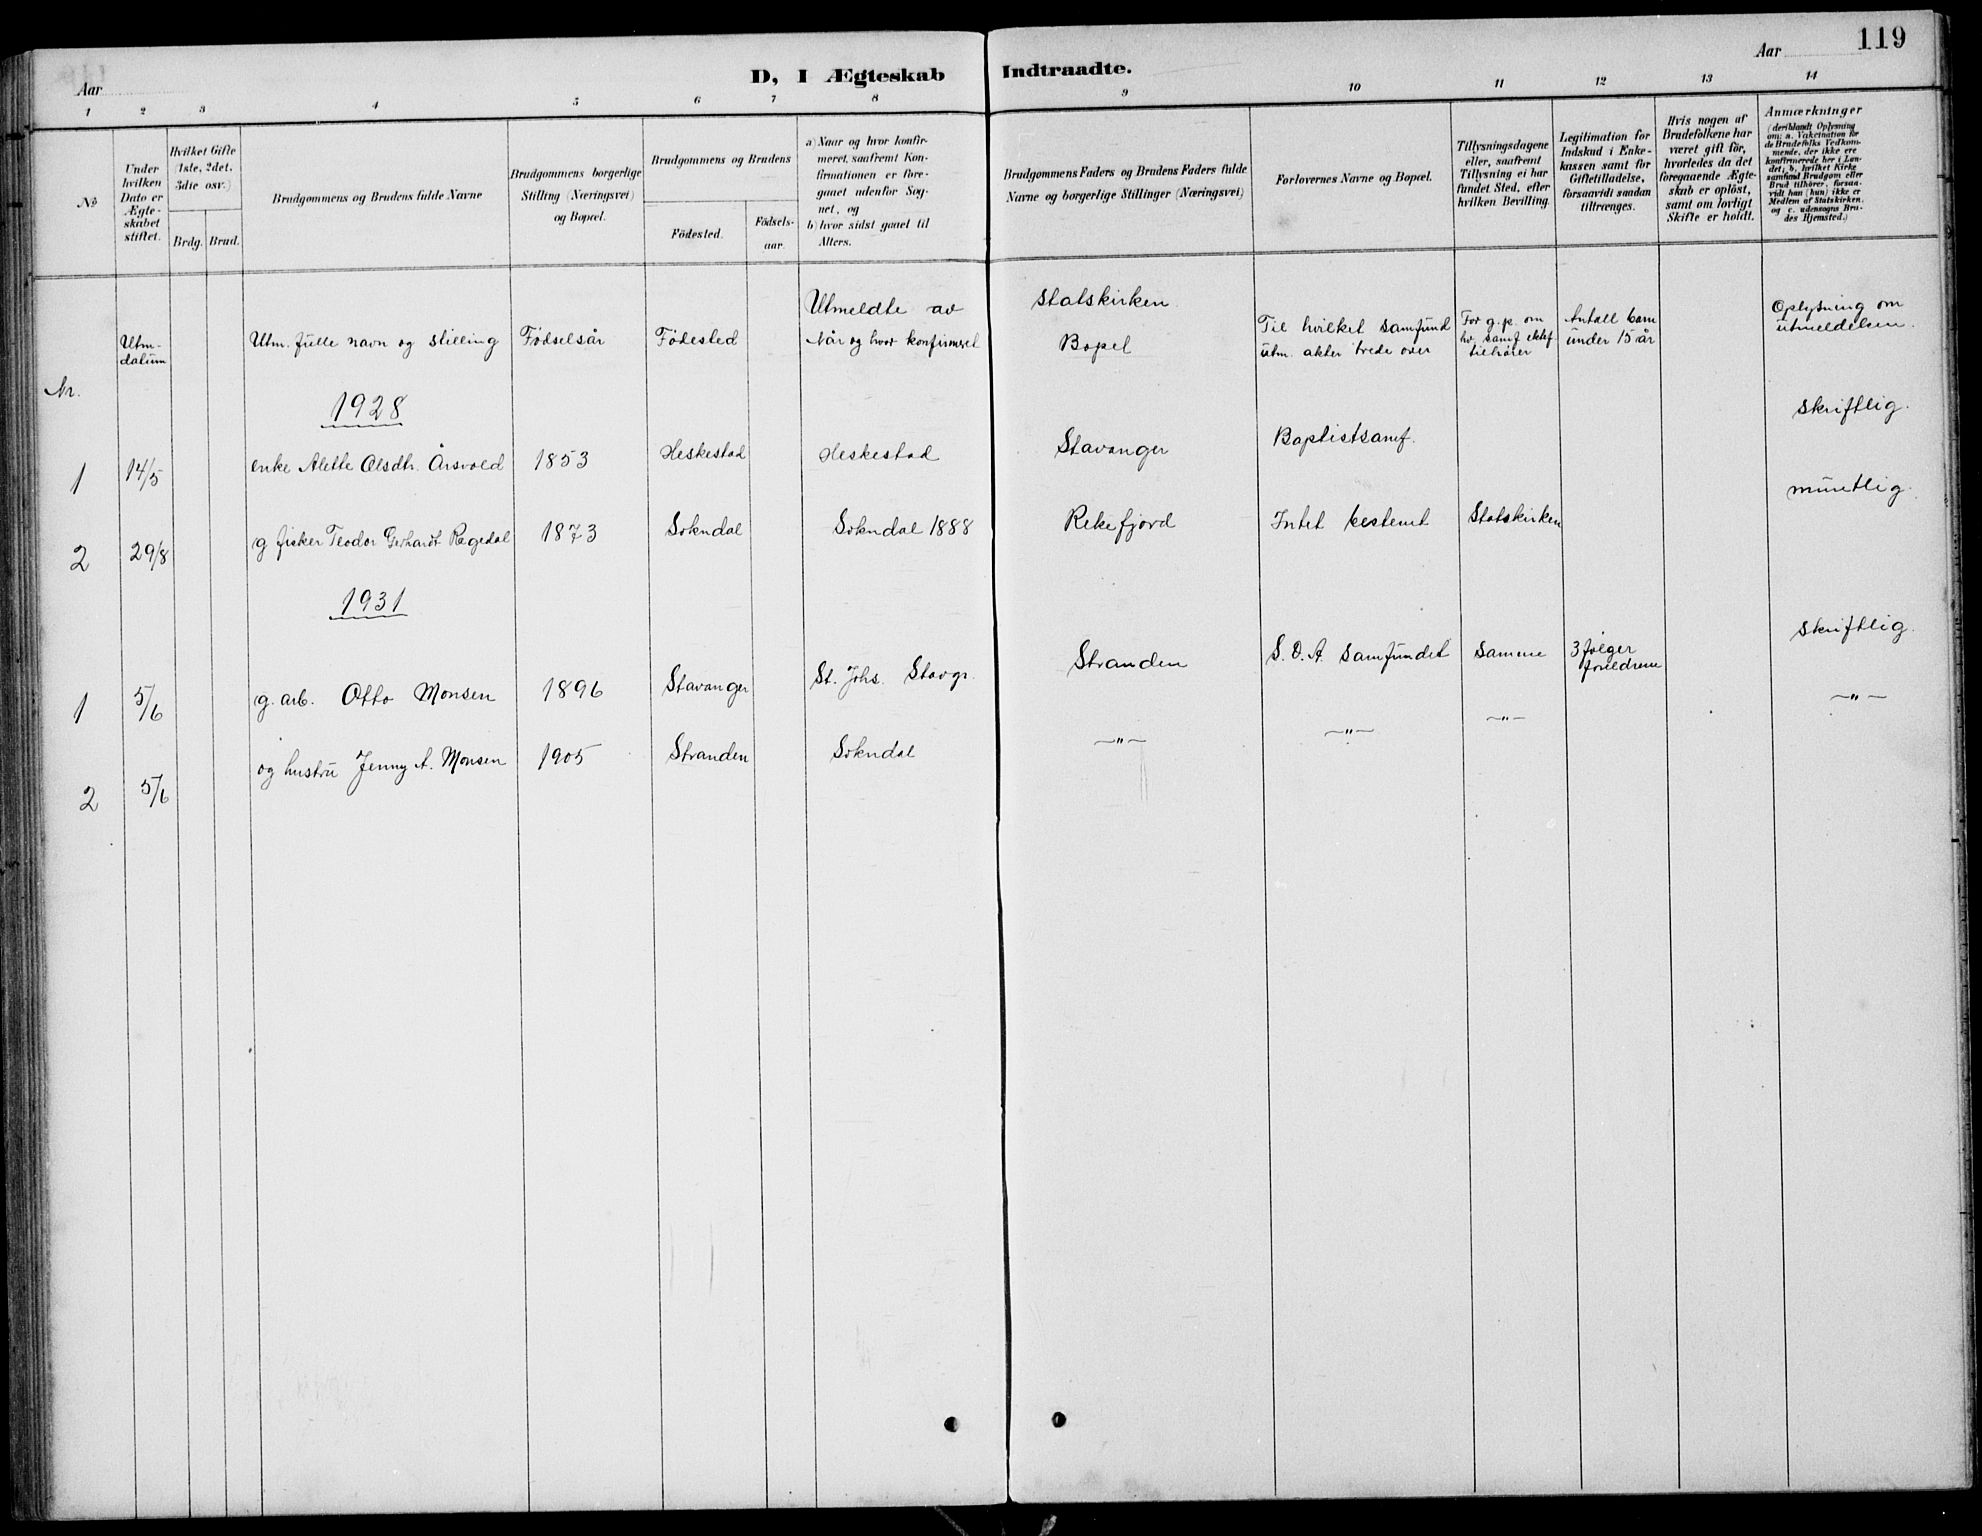 119
Aar
D, I Ægteskab Indtraadte.
Aar
1 2 3 4 5 6 7 8 9 10 11 12 13 14
No
Under
hvilken
Dato er
Ægte-
skabet
stiftet.
Hvilket Gifte
(1ste, 2det,
3die osv.)
Brdg. Brud.
Brudgommens og Brudens fulde Navne
Brudgommens borgerlige
Stilling (Næringsvei)
og Bopæl.
Brudgommens og Brudens
Fødested.
Fødsels-
aar.
a) Naar og hvor konfir-
meret, saafremt Kon-
firmationen er fore-
gaaet udenfor Sog-
net, og
b) hvor sidst gaaet til
Alters.
Brudgommens Faders og Brudens Faders fulde
Navne og borgerlige Stillinger (Næringsvei)
Forlovernes Navne og Bopæl.
Tillysningsdagene
eller, saafremt
Tillysning ei har
fundet Sted, efter
hvilken Bevilling.
Legitimation for
Indskud i Enke-
kassen samt for
Giftetilladelse,
forsaavidt saadan
tiltrænges.
Hvis nogen af
Brudefolkene har
været gift før,
hvorledes da det
foregaaende Ægte-
skab er opløst,
samt om lovligt
Skifte er holdt.
Anmærkninger
(deriblandt Oplysning
om: a. Vakcination for
de Brudefolks Vedkom-
mende, der ikke ere
konfirmerede her i Lan-
det; b. hvilket Kirke-
samfund Brudgom eller
Brud tilhører, forsaa-
vidt han (hun) ikke er
Medlem af Statskirken,
og c. udensogns Bru-
des Hjemsted.)
Utmeldte av statskirken
Nr.
Utm-
datum
Utm. fulle navn og stilling
Fødselsår
Fødested
Når og hvor konfirmert
Bopel
Til hvilket samfund
utm. akter trede over
For g. p. om
hv. samf ektef
tilhører
Antall barn
under 15 år
Oplysning om
utmeldelsen.
1928
1 14/5 enke Alette Olsdtr. Årsvold 1853 Heskestad Heskestad Stavanger Baptistsamf. skriftlig.
2 29/8 g fisker Teodor Gerhardt Regedal 1873 Sokndal Sokndal 1888 Rekefjord Intet bestemt Statskirken muntlig.
1931
1 5/6 g. arb. Otto Monsen 1896 Stavanger St. Johs. Stavgr. Stranden S. D. A. samfundet samme 3 følger
foreldrene skriftlig.
2 5/6 og hustru Jenny A. Monsen 1905 Stranden Sokndal —"— —"— —"— —"—